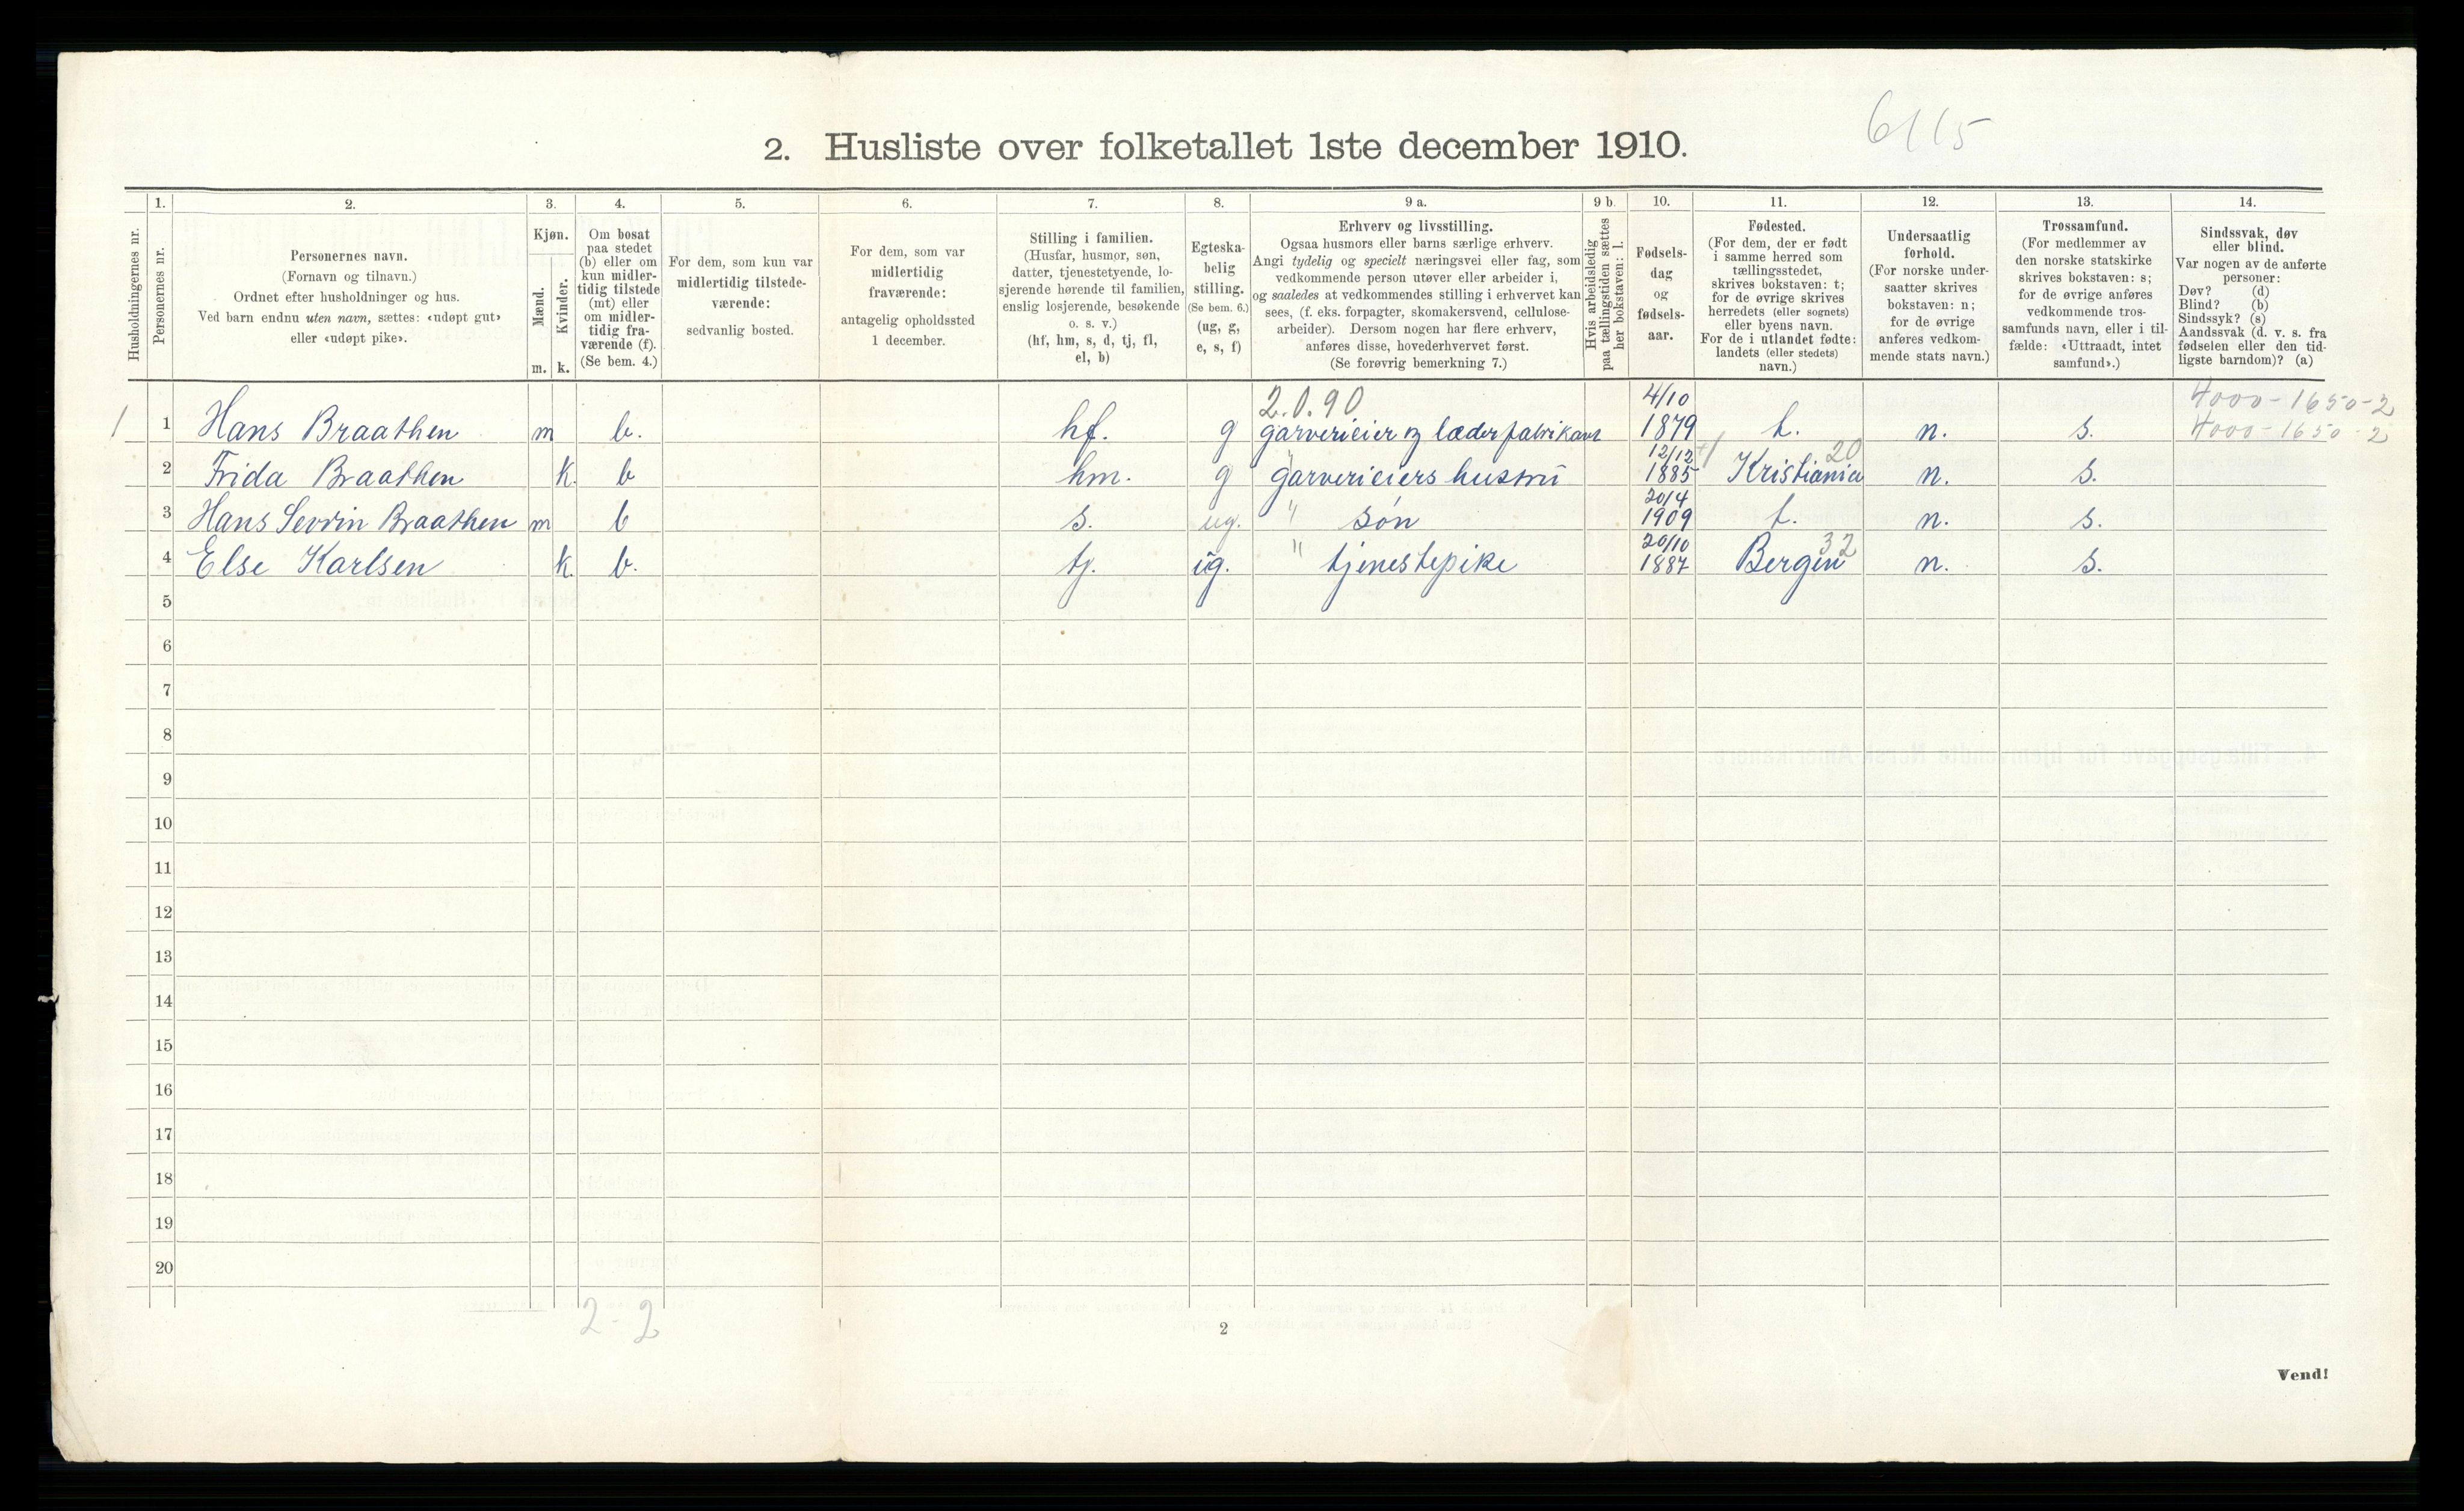 6115
2. Husliste over folketallet 1ste december 1910.
1. 2. 3. 4. 5. 6. 7. 8. 9 a. 9 b. 10. 11. 12. 13. 14.
Husholdningernes nr.
Personernes nr.
Personernes navn.
(Fornavn og tilnavn.)
Ordnet efter husholdninger og hus.
Ved barn endnu uten navn, sættes: «udøpt gut»
eller «udøpt pike».
Kjøn.
Mænd.
Kvinder.
m. k.
Om bosat
paa stedet
(b) eller om
kun midler-
tidig tilstede
(mt) eller
om midler-
tidig fra-
værende (f).
(Se bem. 4.)
For dem, som kun var
midlertidig tilstede-
værende:
sedvanlig bosted.
For dem, som var
midlertidig
fraværende:
antagelig opholdssted
1 december.
Stilling i familien.
(Husfar, husmor, søn,
datter, tjenestetyende, lo-
sjerende hørende til familien,
enslig losjerende, besøkende
o. s. v.)
(hf, hm, s, d, tj, fl,
el, b)
Egteska-
belig
stilling.
(Se bem. 6.)
(ug, g,
e, s, f)
Erhverv og livsstilling.
Ogsaa husmors eller barns særlige erhverv.
Angi tydelig og specielt næringsvei eller fag, som
vedkommende person utøver eller arbeider i,
og saaledes at vedkommendes stilling i erhvervet kan
sees, (f. eks. forpagter, skomakersvend, cellulose-
arbeider). Dersom nogen har flere erhverv,
anføres disse, hovederhvervet først.
(Se forøvrig bemerkning 7.)
Hvis arbeidsledig
paa tællingstiden sættes
her bokstaven: l.
Fødsels-
dag
og
fødsels-
aar.
Fødested.
(For dem, der er født
i samme herred som
tællingsstedet,
skrives bokstaven: t;
for de øvrige skrives
herredets (eller sognets)
eller byens navn.
For de i utlandet fødte:
landets (eller stedets)
navn.)
Undersaatlig
forhold.
(For norske under-
saatter skrives
bokstaven: n;
for de øvrige
anføres vedkom-
mende stats navn.)
Trossamfund.
(For medlemmer av
den norske statskirke
skrives bokstaven: s;
for de øvrige anføres
vedkommende tros-
samfunds navn, eller i til-
fælde: «Uttraadt, intet
samfund».)
Sindssvak, døv
eller blind.
Var nogen av de anførte
personer:
Døv? (d)
Blind? (b)
Sindssyk? (s)
Aandssvak (d. v. s. fra
fødselen eller den tid-
ligste barndom)? (a)
2.0.90 4/10 4000-1650-2
1 1 Hans Braathen m b. hf. g garverieier og læderfabrikant 1879 t. n. s. 4000-1650-2
12/12 20
2 Frida Braathen k. b hm. g garverieiers hustru 1885 Kristiania n. s.
20/4
3 Hans Sevrin Braathen m b s. ug. " søn 1909 t. n. s.
20/10 32
4 Else Karlsen k. b. tj. ug. " tjenestepike 1887 Bergen n. s.
5
6
7
8
9
10
11
12
13
14
15
16
17
18
19
20
2-2
2
Vend!